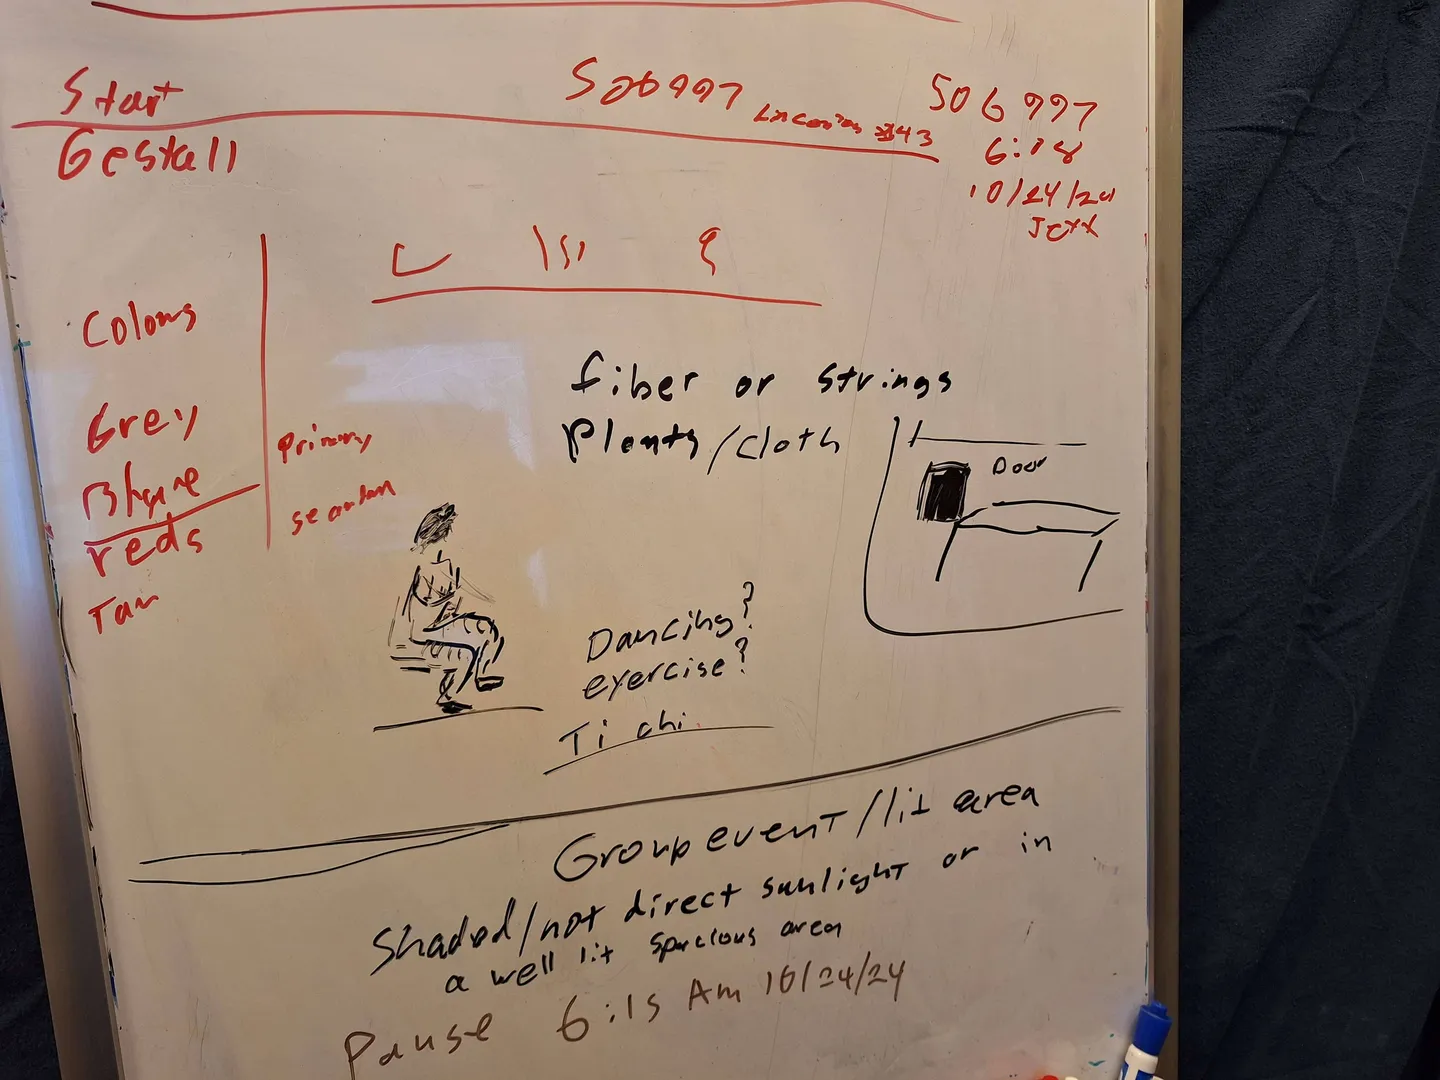 Start
506997
506997
6:08
10/24/24
Gestall
Colours
Grey
Primary
reds
Tan
fiber or strings
Plants/cloth
Door
Dancing?
exercise?
Ti chi
Group event/lit area
Shaded/not direct sunlight or in
a well lit spacious area
Pause 6:15 Am 10/24/24